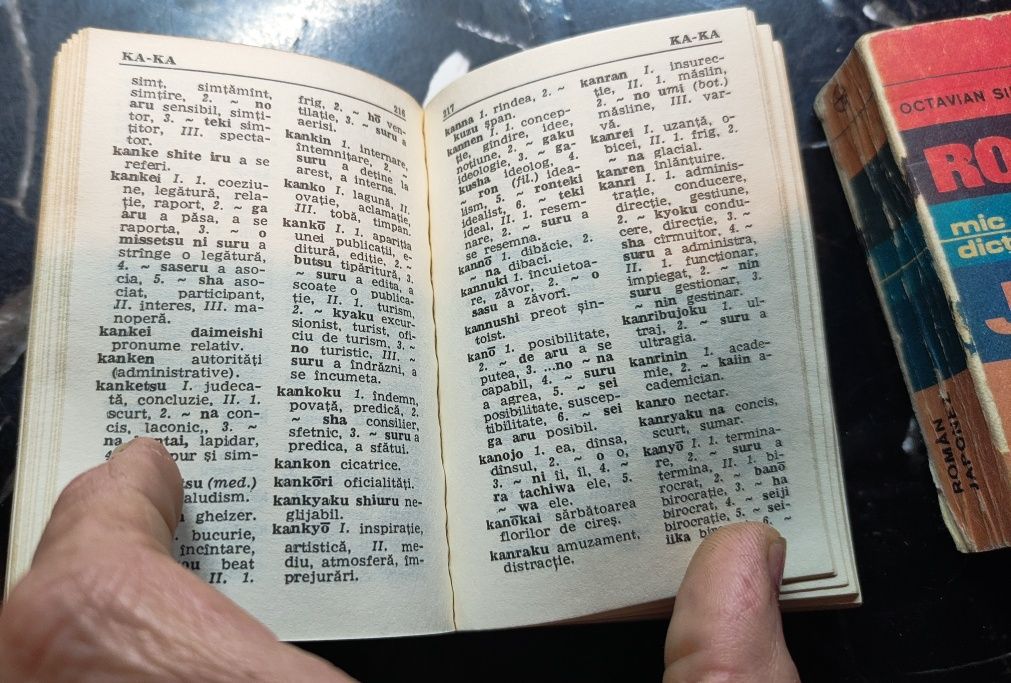 KA-KA
simt, simțămînt,
simțire, 2. ~ no
aru sensibil, simți-
tor, 3. ~ teki sim-
țitor, III. specta-
tor.
kanke shite iru a se
referi.
kankei I. 1. coeziu-
ne, legătură, rela-
ție, raport, 2. ~ ga
aru a păsa, a se
raporta, 3. ~ o
missetsu ni suru a
strînge o legătură,
4. ~ saseru a aso-
cia, 5. ~ sha aso-
ciat, participant,
II. interes, III. ma-
noperă.
kankei daimeishi
pronume relativ.
kanken autorități
(administrative).
kanketsu I. judeca-
tă, concluzie, II. 1.
scurt, 2. ~ na con-
cis, laconic,, 3. ~
na lapidar,
pur și sim-
(med.)
gheizer.
bucurie,
încîntare,
beat
II. 1.
216
frig, 2. ~ hō ven-
tilație, 3. ~ suru a
aerisi.
kankin 1. internare,
întemnițare, 2. ~
suru a deține la
arest, a interna.
kanko I. lagună, II.
ovație, aclamație,
III. tobă, timpan.
kankō I. 1. apariția
unei publicații, e-
ditură, ediție, 2. ~
butsu tipăritură, 3.
~ suru a edita, a
scoate o publica-
ție, II. 1. turism,
2. ~ kyaku excur-
sionist, turist, ofi-
ciu de turism, 3. ~
no turistic, III. ~
suru a îndrăzni, a
se încumeta.
kankoku 1. îndemn,
povață, predică, 2.
~ sha consilier,
sfetnic, 3. ~ suru a
predica, a sfătui.
kankon cicatrice.
kankōri oficialități.
kankyaku shiuru ne-
glijabil.
kankyō I. inspirație,
artistică, II. me-
diu, atmosferă, îm-
prejurări.
KA-KA
217
kanna 1. rindea, 2. ~
kuzu șpan.
kannen I. 1. concep-
ție, gîndire, idee,
noțiune, 2. ~ gaku
ideologie, 3. ~ ga-
kusha ideolog, 4.
~ ron (fil.) idea-
lism, 5. ~ ronteki
idealist, 6. ~ teki
ideal, II. 1. resem-
nare, 2. ~ suru a
se resemna.
kannō 1. dibăcie, 2.
~ na dibaci.
kannuki 1. încuietoa-
re, zăvor, 2. ~ o
sasu a zăvorî.
kannushi preot șin-
toist.
kanō 1. posibilitate,
2. ~ de aru a se
putea, 3. ...no ~ na
capabil, 4. ~ suru
a agrea, 5. ~ sei
posibilitate, suscep-
tibilitate, 6. ~ sei
ga aru posibil.
kanojo 1. ea, dînsa,
dînsul, 2. ~ o o,
3. ~ ni îi, îl, 4. ~
ra tachiwa ele, 5.
~ wa ele.
kanōkai sărbătoarea
florilor de cireș.
kanraku amuzament,
distracție.
kanran I. insurec-
ție, II. 1. măslin,
2. ~ no umi (bot.)
măsline, III. var-
vă.
kanrei I. uzanță, o-
bicei, II. 1. frig, 2.
~ na glacial.
kanren înlănțuire.
kanri I. 1. adminis-
trație, conducere,
direcție, gestiune,
2. ~ kyoku condu-
cere, direcție, 3. ~
sha cîrmuitor, 4. ~
suru a administra,
II. 1. funcționar,
impiegat, 2. ~ nin
suru gestionar, 3.
~ nin gestinar.
kanribujoku 1. ul-
traj, 2. ~ suru a
ultragia.
kanrinin 1. acade-
mie, 2. ~ kaiin a-
cademician.
kanro nectar.
kanryaku na concis,
scurt, sumar.
kanyō I. 1. termina-
re, 2. ~ suru a
termina, II. 1. bi-
rocrat, 2. ~ banō
birocrație, 3. ~ ha
birocrat, 4. ~ seiji
birocrație, 5. ~ sei-
iika 6. ~
OCTAVIAN
mic
ROMÂN